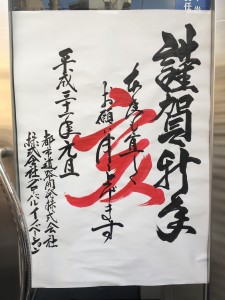 謹賀新年
本年も宜しく
お願い申し上げます
亥
平成三十一年元旦
都市道路開発株式会社
株式会社グローバルイノベーション